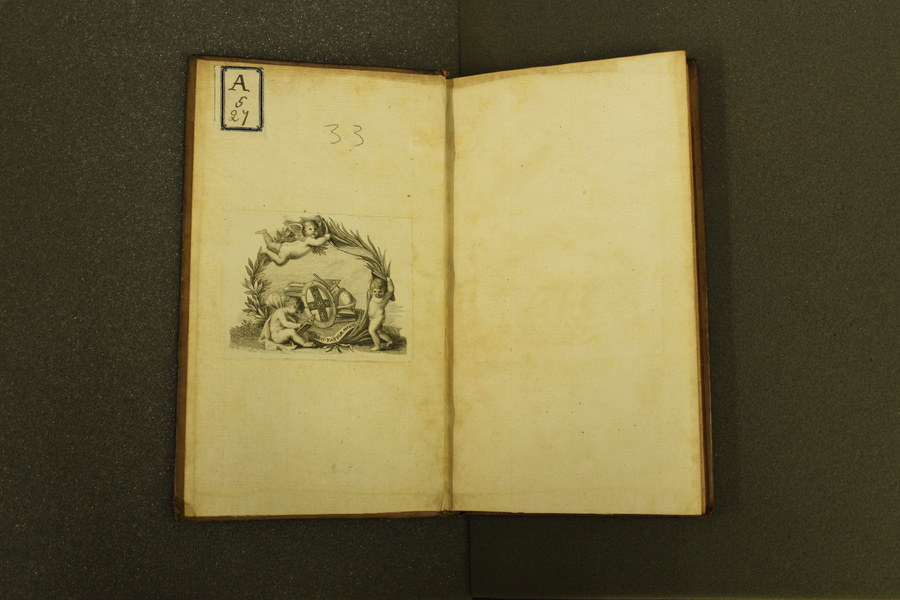 A
5
27
33